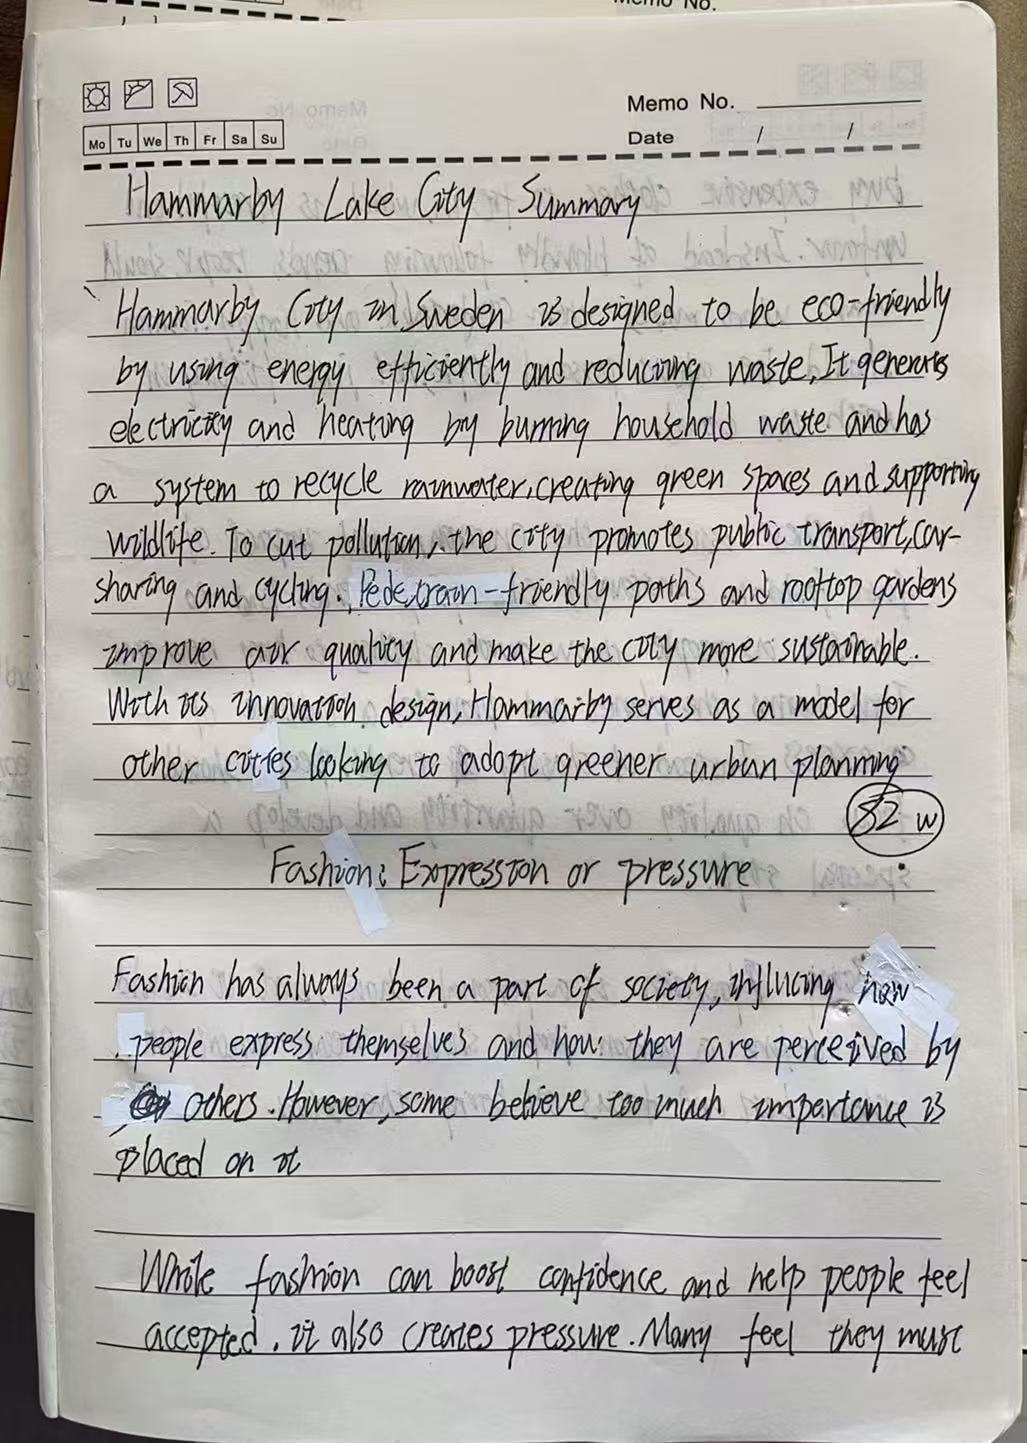 Memo No.
Memo No.
Date / /
Mo Tu We Th Fr Sa Su
Hammarby Lake City Summary
Hammarby City in Sweden is designed to be eco-friendly
by using energy efficiently and reducing waste. It generates
electricity and heating by burning household waste and has
a system to recycle rainwater, creating green spaces and supporting
wildlife. To cut pollution, the city promotes public transport, car-
sharing and cycling. Pedestrain-friendly paths and rooftop gardens
improve air quality and make the city more sustainable.
With its innovation design, Hammarby serves as a model for
other cities looking to adopt greener urban planning
82 w
Fashion: Expression or pressure
Fashion has always been a part of society, influcing how
people express themselves and how they are perceived by
others. However, some believe too much importance is
placed on it
While fashion can boost confidence and help people feel
accepted, it also creates pressure. Many feel they must